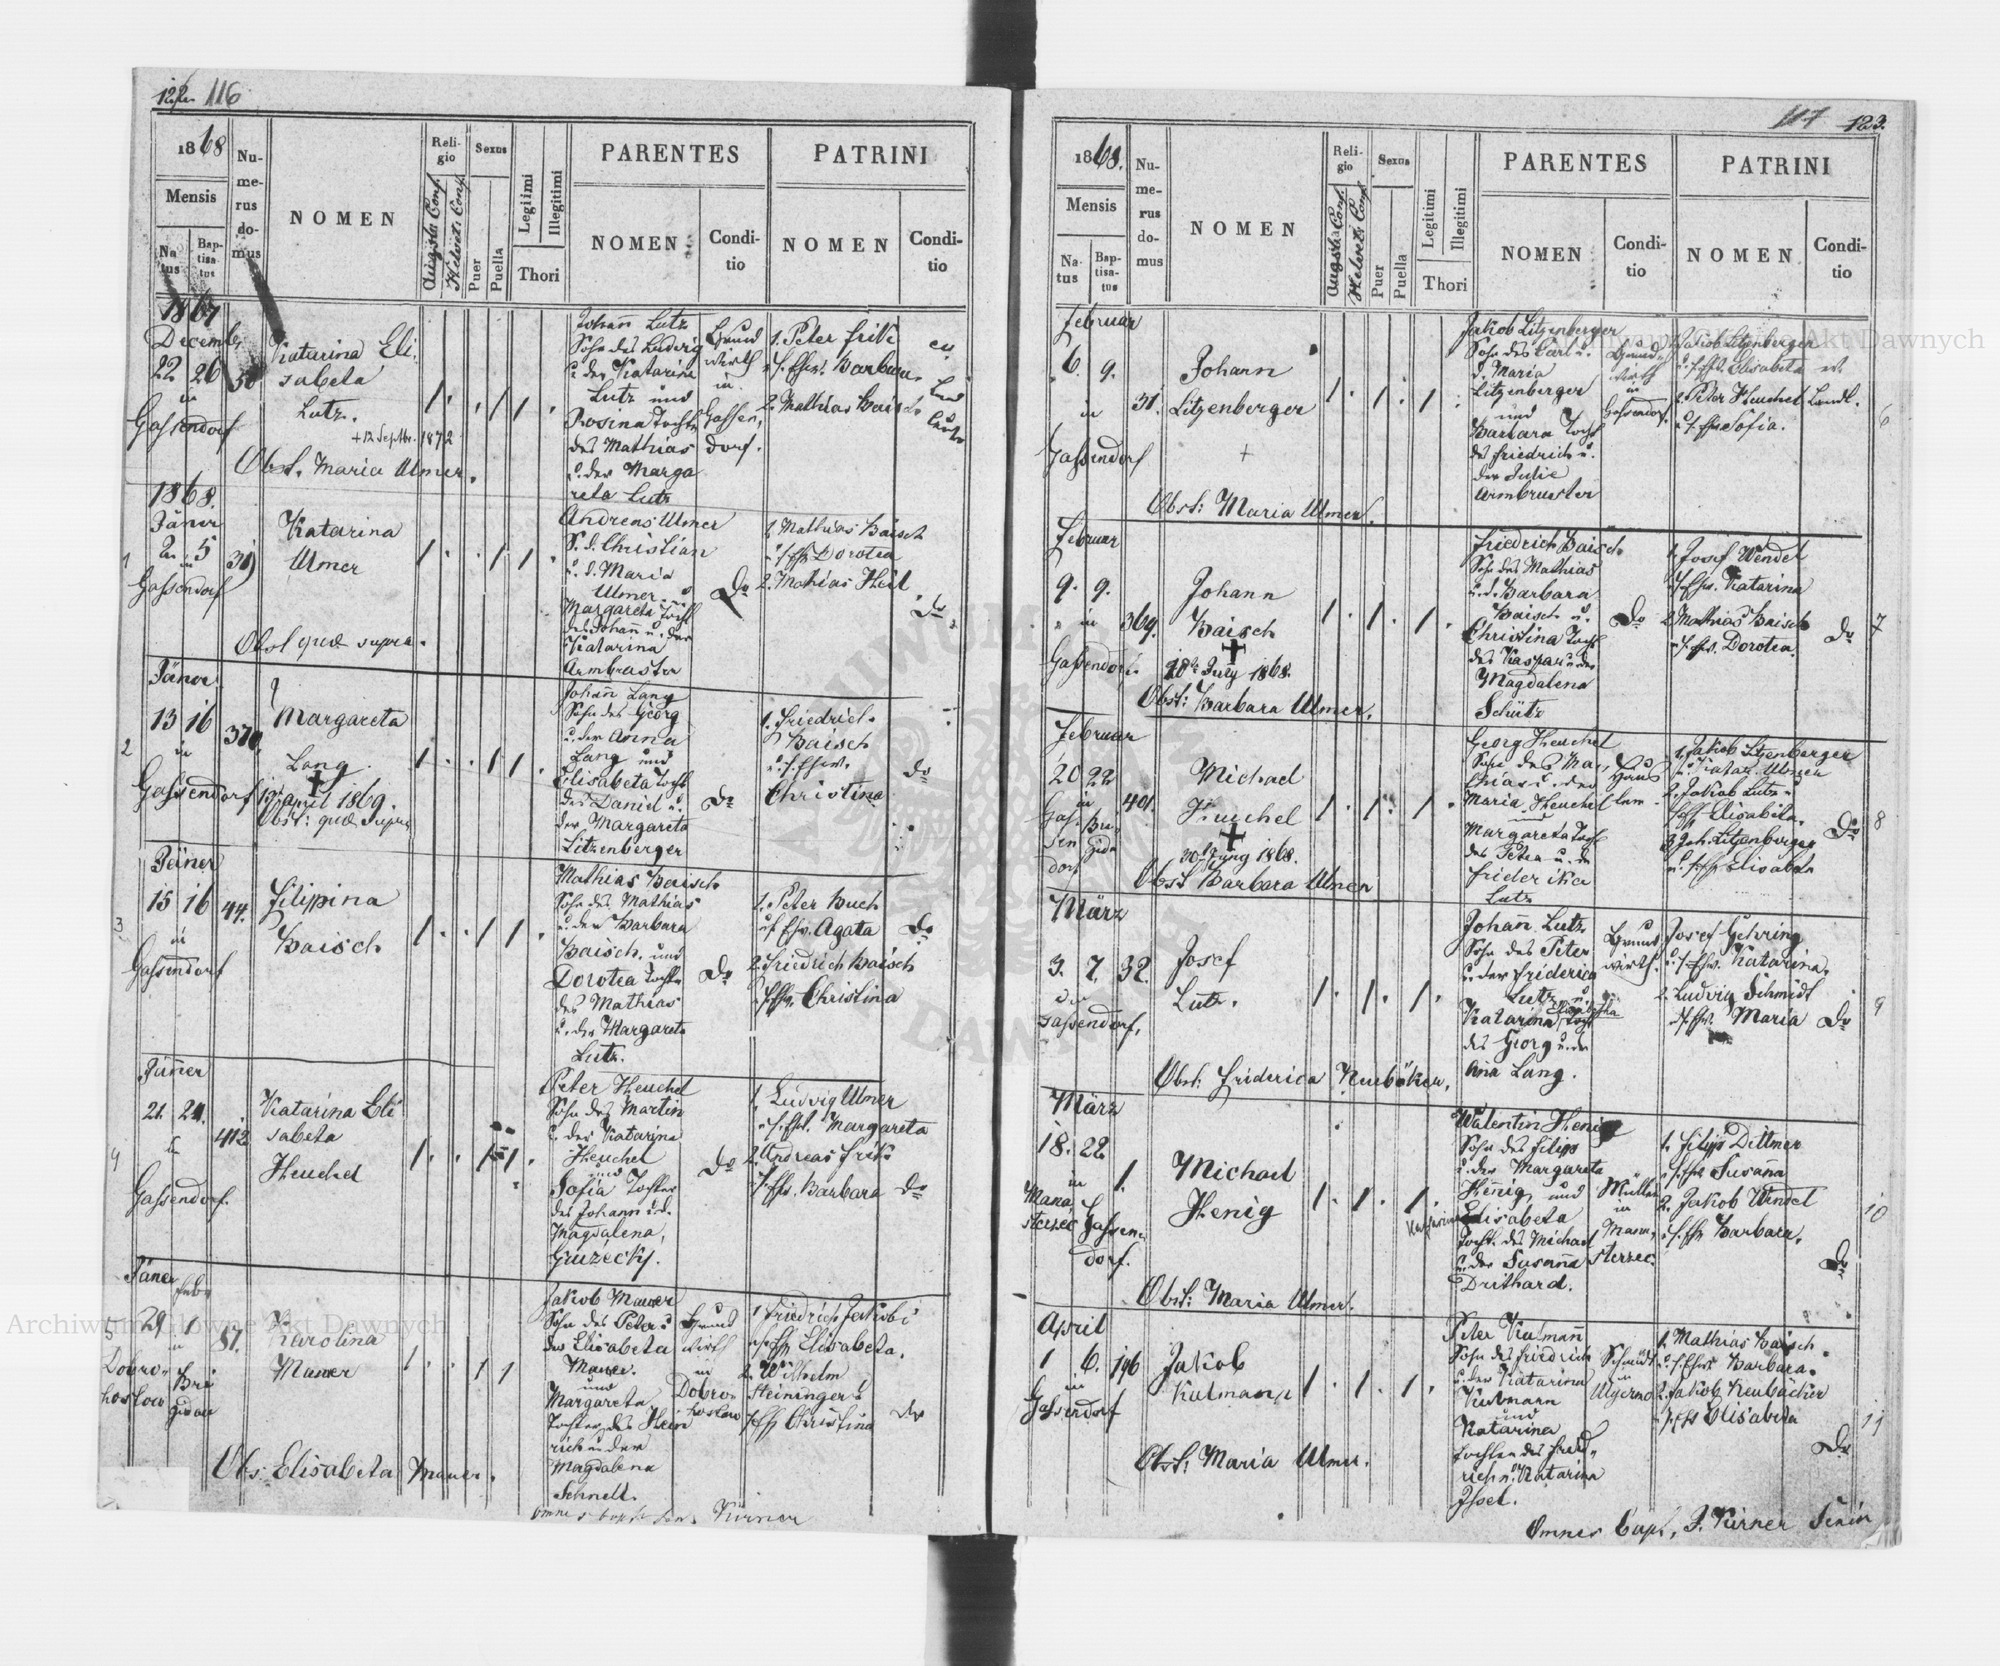 122. 116
1868
Mensis
Na-
tus
Bap-
tisa-
tus
Nu-
me-
rus
do-
mus
NOMEN
Reli-
gio
Augsta Conf.
Helvet. Conf.
Sexus
Puer
Puella
Legitimi
Illegitimi
Thori
PARENTES
NOMEN
Condi-
tio
PATRINI
NOMEN
Condi-
tio
1867
December
22 26 50
in
Gassendorf
Katarina Eli-
sabeta
Lutz.
+ 12 Septbr. 1872
Obst. Maria Ulmer.
Johann Lutz
Sohn des Ludwig
u. der Katarina
Lutz und
Rosina Tochter
des Mathias
u. der Marga
reta Lutz
Grund
wirth
in
Gassen,
dorf.
1. Peter Friks
u. s. Ehw. Barbara
2. Mathias Baisch
1868.
Jäner
1
2. 5 39
in
Gassendorf
Katarina
Ulmer
Obst quae supra.
Andreas Ulmer
S. d. Christian
u. d. Maria
Ulmer u.
Margareta Tocht
des Johann u. der
Katarina
Armbruster
Do
1. Mathias Baisch
u. s. Ehw. Dorotea
2. Mathias Heil
Do
Jäner
2
13 16 370
in
Gassendorf
Margareta
Lang.
April 1869.
Obst: quae supra
Johann Lang
Sohn des Georg
u. der Anna
Lang und
Elisabeta Tocht
des Daniel u.
der Margareta
Litzenberger
Do
1. Friedrich
Baisch
u. s. Ehw.
Christina
Do
Jäner
3
15 16 44.
in
Gassendorf
Filippina
Baisch
Mathias Baisch
Sohn des Mathias
u. der Barbara
Baisch. und
Dorotea Tocht
des Mathias
u. der Margareta
Lutz.
Do
1. Peter Buch
u. s. Ehw. Agata
2. Friedrich Baisch
u. s. Ehw. Christina
Do
Jäner
4
21. 24. 412
in
Gassendorf.
Katarina Eli
sabeta
Heuchel
Peter Heuchel
Sohn des Martin
u. der Katarina
Heuchel
und
Sofia Tochter
des Johann u. d.
Magdalena,
Gruzecky.
Do
1. Ludvig Ulmer
u. s. Ehw. Margareta
2. Andreas Friks
u. s. Ehw. Barbara
Do
Jäner Feb.
5
29 1 87.
in
Dobro-
hostow
Bri
gidau
Karolina
Mauer
Obs. Elisabeta Mauer.
Jakob Mauer
Sohn des Peter u
der Elisabeta
Mauer.
und
Margareta
Tochter des Hein
rich u. der
Magdalena
Schnell.
Grund
wirth
in
Dobro-
hostow
1. Friedrich Jakobi
u. s. Ehw. Elisabeta.
2. Wilhelm
Steininger u
s. Ehw. Christina
Do
Kirner
117 123.
1868.
Mensis
Na-
tus
Bap-
tisa-
tus
Nu-
me-
rus
do-
mus
NOMEN
Reli-
gio
Augsta Conf.
Helvet. Conf.
Sexus
Puer
Puella
Legitimi
Illegitimi
Thori
PARENTES
NOMEN
Condi-
tio
PATRINI
NOMEN
Condi-
tio
Februar
6. 9. 31.
in
Gassendorf
Johann
Litzenberger
+
Obst: Maria Ulmer.
Jakob Litzenberger
Sohn des Carl u.
d. Maria
Litzenberger
und
Barbara Tocht
des Friedrich u.
der Julie
Armbruster
Grund
wirth
in
Gassendorf.
1. Jakob Litzenberger
u. s. Ehw. Elisabeta
2. Peter Heuchel
u. s. Ehw. Sofia.
Landl.
6
Februar
9. 9. 369.
in
Gassendorf.
Johann
Baisch
Juny 1868.
Obst: Barbara Ulmer.
Friedrich Baisch
Sohn des Mathias
u. d. Barbara
Baisch u.
Christina Tocht
des Kaspar u. der
Magdalena
Schütz
Do
1. Josef Wendel
u. s. Ehw. Katarina
2. Mathias Baisch
u. s. Ehw. Dorotea.
Do
7
Februar
20 22 401.
in
Gas-
sen
dorf
Bri
gida
Michael
Heuchel
30 Juny 1868.
Obst Barbara Ulmer
Georg Heuchel
Sohn des Ma-
thias u. der
Maria Heuchel
und
Margareta Tocht
des Peter u. der
Friderika
Lutz
1. Jakob Litzenberger
u. Katar. Ulmer
2. Jakob Lutz u
s. Ehw. Elisabeta.
3. Joh. Litzenberger
u. s. Ehw. Elisabeta
Do
8
März
3. 7. 32.
in
Gassendorf,
Josef
Lutz.
Obst: Friderica Neubäker.
Johann Lutz
Sohn des Peter
u. der Friderica
Lutz u.
Elisabetha
Katarina Tocht
des Georg u. der
Ana Lang.
Grund
wirth.
Josef Gehring
u. s. Ehw. Katarina.
2. Ludvig Schmidt
u. s. Ehw. Maria
Do
9
März
18. 22. 1.
in
Mana
sterzec
Gassen-
dorf.
Michael
Henig
Obst: Maria Ulmer.
Walentin Henig
Sohn des Filipp
u. der Margareta
Hennig und
Katharina
Elisabeta
Tocht. des Michael
u. der Susanna
Drithard.
Müller
in
Mana,
sterzec.
1. Filipp Dittmer
u. s. Ehw. Susanna
2. Jakob Wendel
u. s. Ehw. Barbara.
Do
10
April
1 6. 196
in
Gassendorf
Jakob
Kulmann
Obst: Maria Ulmer.
Peter Kulmann
Sohn des Friedrich
u. der Katarina
Kulmann
und
Katarina
Tochter des Fried-
rich u. Katarina
Issel.
Schmidt
in
Ugersno
1. Mathias Baisch
u. s. Ehw. Barbara.
2. Jakob Neubacker
u. s. Ehw. Elisabeta
Do
11
Omnes bapt. J. Kirner Senior
Archiwum Główne Akt Dawnych
Archiwum Główne Akt Dawnych